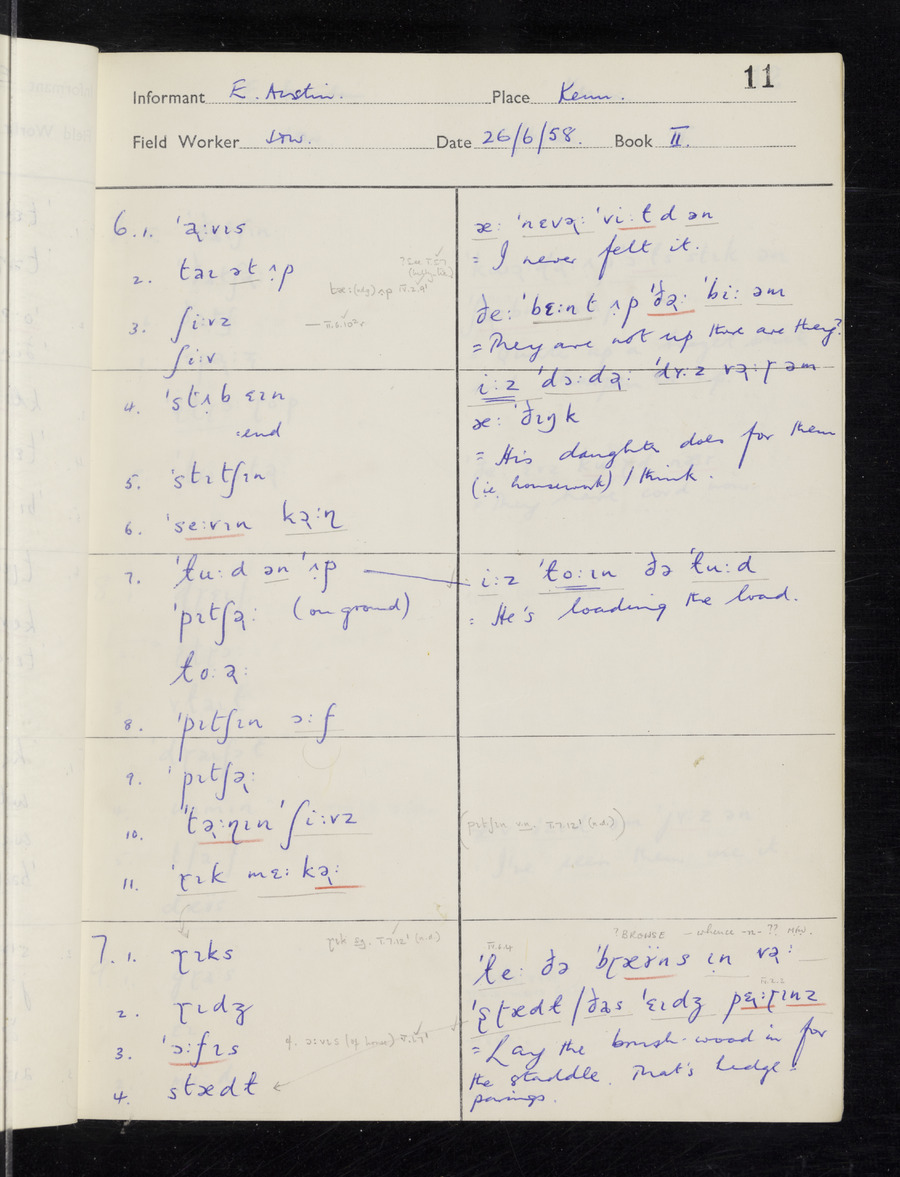 11
Informant E. Austin. Place Kenn.
Field Worker Date 26/6/58. Book II.
6.1. 'ɑː vɪs
2. təɪ ət ʌp
3. ʃiːvz
ʃiːv
4. 'stʌb ɛɪn
ːend
5. 'stɪtʃɪn
6. 'seːvɪn kəːɳ
7. 'ɫuːd ən 'ʌp
'pɪtʃəː (on ground)
ɫoːəː
8. 'pɪtʃɪn ɔːf
9. 'pɪtʃəː
10. 'təːɳɪn 'ʃiːvz
11. 'ɽɪk mɛː kəː
7.1. ɽɪks
2. ɽɪdʒ
3. 'ɔːfɪs
4. stædɫ
æː 'nɛvəː 'viːɫd ən
= I never felt it.
ðeː 'bɛːnt ʌp 'ðəː 'biː əm
= They are not up there are they?
iːz 'dɔːdəː 'dʏːz vəːɽ əm
æː 'ðɪŋk
= His daughter does for them
(i.e. housework) I think.
iːz 'ɫoːɪn ðə 'ɫuːd
= He's loading the load.
(pɪtʃɪn vn. II.7.12¹ (n.d.))
ɽɪk sg. II.7.12¹ (n.d.)
? BROWSE - whence -n- ??
'ɫeː ðə 'bɽæʏns ɪn vəː
'stædɫ / ðæs 'ɛɪdʒ pɛəːɽɪnz
= Lay the brush-wood in for
the staddle. That's hedge-
parings.